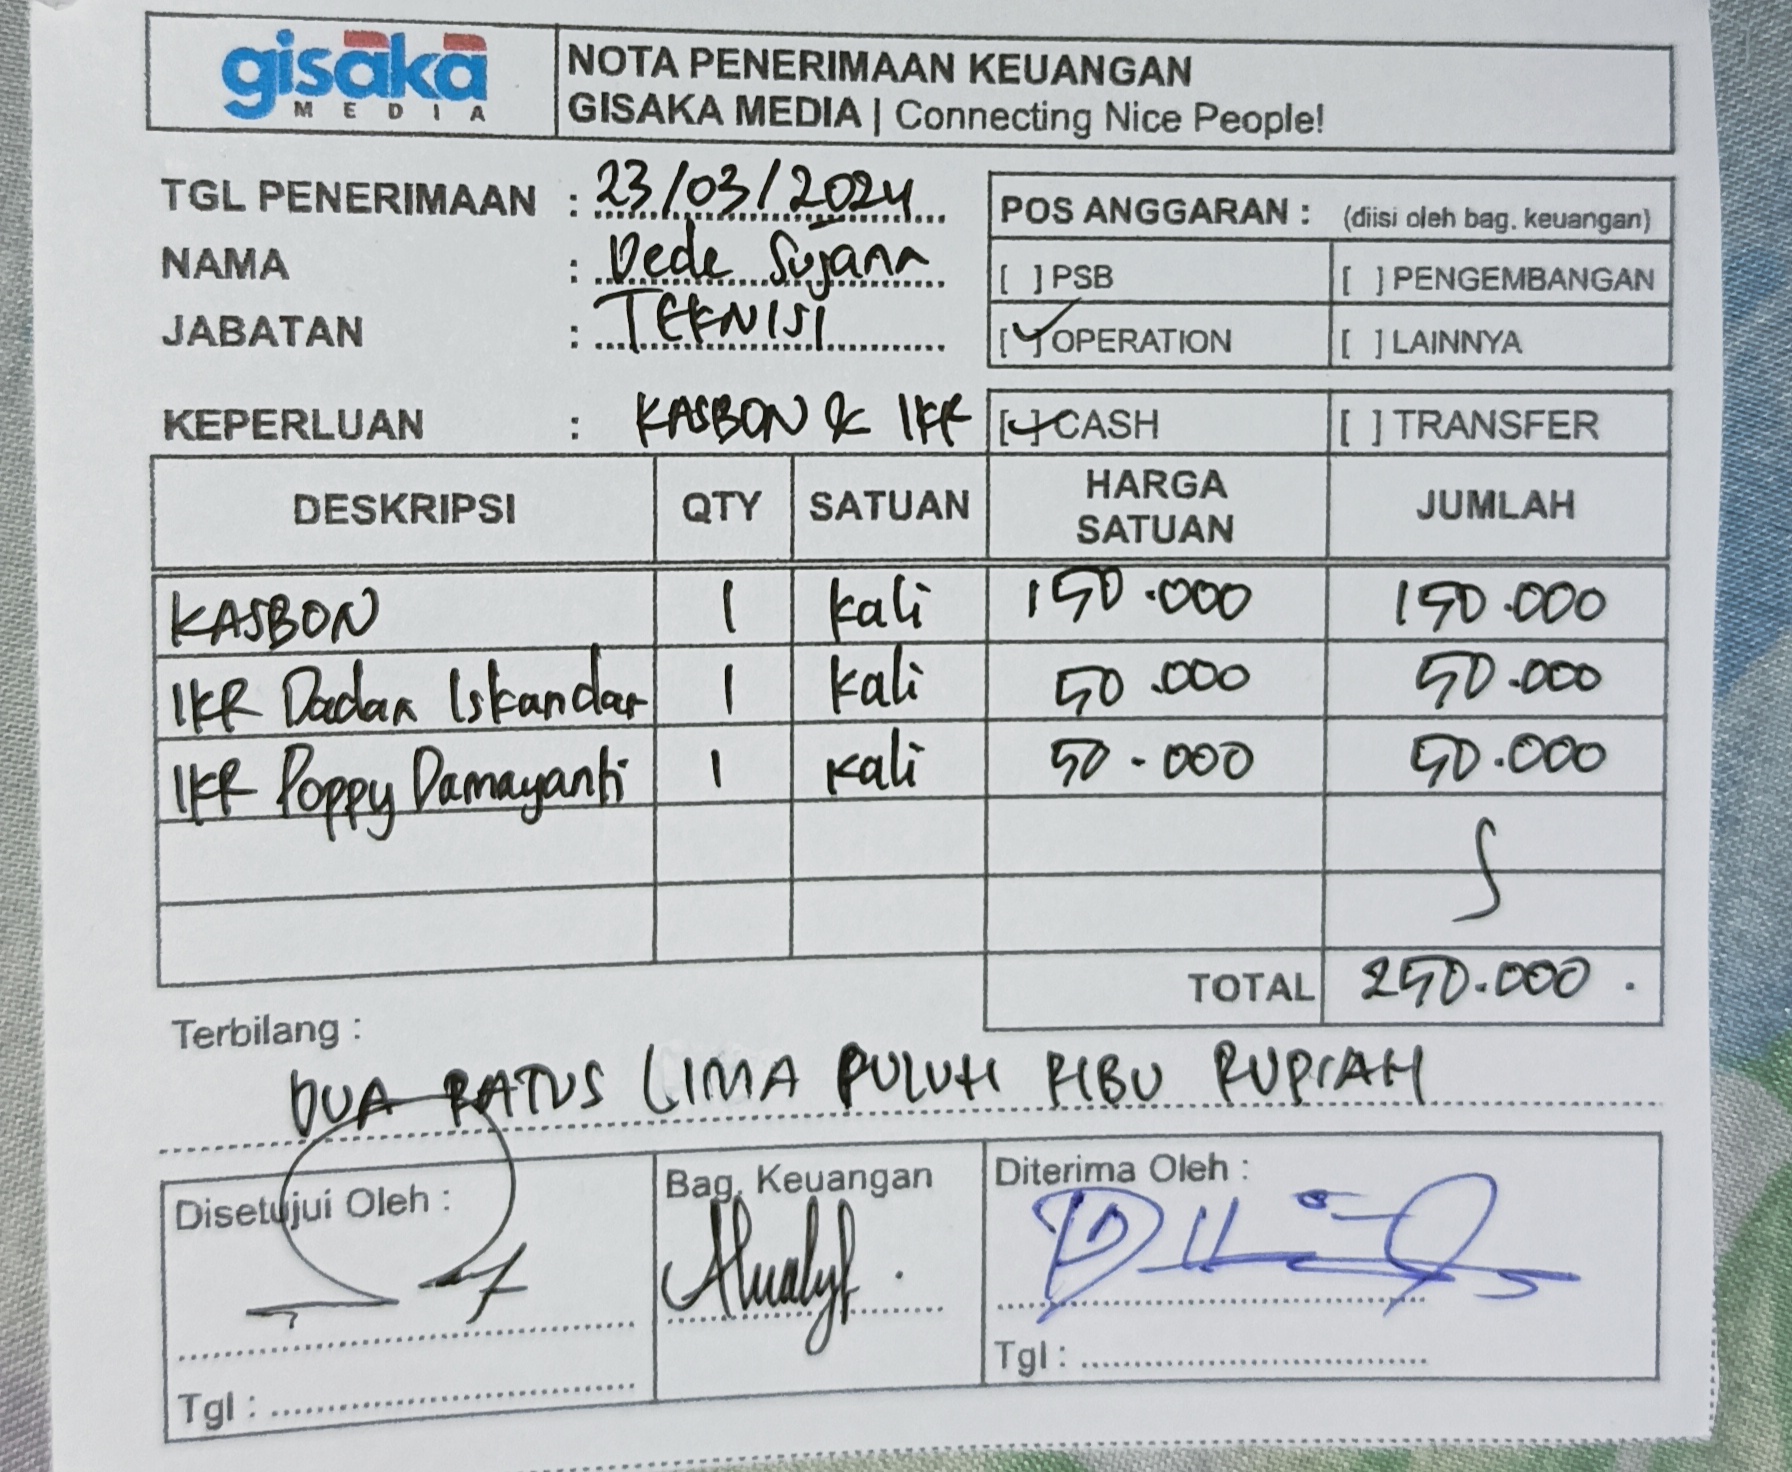 gisaka
MEDIA
NOTA PENERIMAAN KEUANGAN
GISAKA MEDIA | Connecting Nice People!
TGL PENERIMAAN : 23/03/2024
NAMA : Dede Sujana
JABATAN : TEKNISI
POS ANGGARAN : (diisi oleh bag. keuangan)
[ ] PSB [ ] PENGEMBANGAN
[✓] OPERATION [ ] LAINNYA
KEPERLUAN : KASBON & IKR [✓] CASH [ ] TRANSFER
DESKRIPSI QTY SATUAN HARGA SATUAN JUMLAH
KASBON 1 kali 150.000 150.000
IKR Dadan Iskandar 1 kali 50.000 50.000
IKR Poppy Damayanti 1 kali 50.000 50.000
TOTAL 250.000
Terbilang :
DUA RATUS LIMA PULUH RIBU RUPIAH
Disetujui Oleh : Bag. Keuangan Diterima Oleh :
Tgl : Tgl :